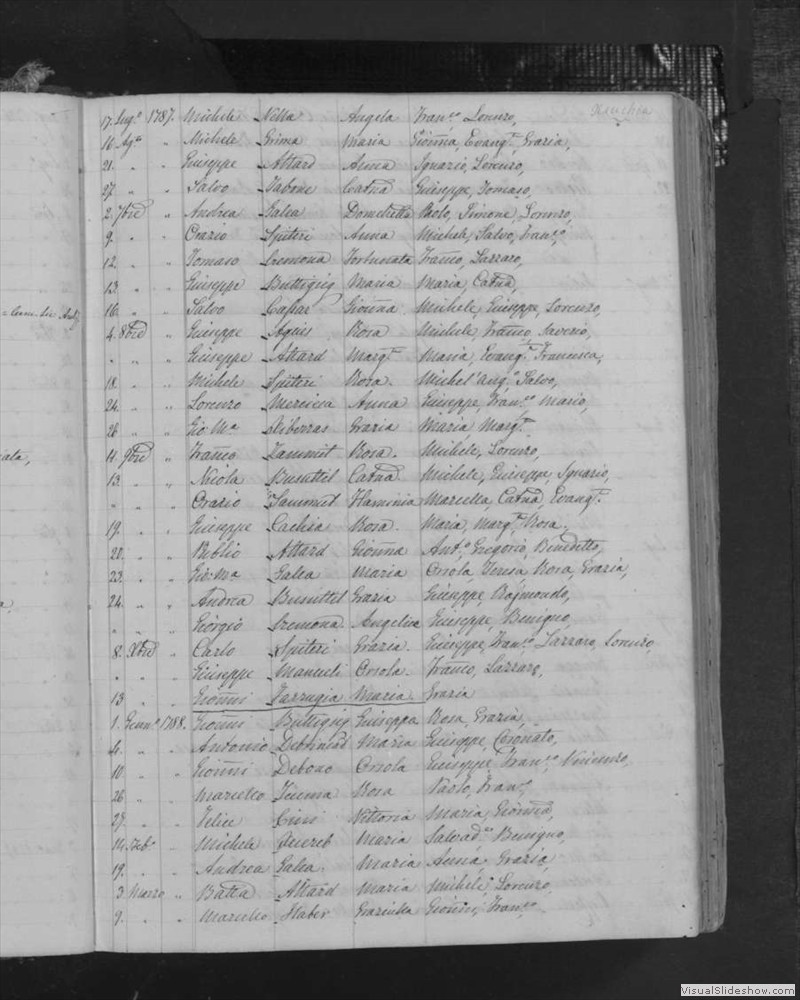 17. Lug.o 1787. Michele Vella Angela Fran.co Lorenzo,
16. Ag.o " Michele Grima Maria Gioñna, Evang.ta Grazia,
21. " " Giuseppe Attard Anna Ignazio, Lorenzo,
27. " " Salvo Tabone Catña Giuseppe, Tomaso,
2. 7bre " Andrea Galea Paolo, Simone, Lorenzo,
9. " " Orazio Spiteri Anna Michele, Salvo, Fran.co
12. " " Tomaso Cremona Fortunata Franco, Lazzaro,
13. " " Giuseppe Buttigieg Maria Maria, Catña,
16. " " Salvo Gaspar Gioñna Michele, Giuseppe, Lorenzo,
4. 8bre " Giuseppe Agius Rosa Michele, Franco, Saverio,
" " " Giuseppe Attard Marg.ta Maria, Evang.ta Francesca,
18. " " Michele Spiteri Rosa. Michel'Ang.o Salvo,
24. " " Lorenzo Mercieca Anna Giuseppe, Fran.co Mario,
28. " " Gio Ma Diberras Grazia Maria, Marg.ta
11. 9bre " Franco Zammit Rosa. Michele, Lorenzo,
13. " " Nicola Busuttil Catña Michele, Giuseppe, Ignazio,
" " " Orazio Sammut Flaminia Marcella, Catña, Evang.ta
19. " " Giuseppe Cachia Rosa. Maria, Marg.ta Rosa.
20. " " Publio Attard Gioñna Ant.o Gregorio, Benedetto,
23. " " Gio: Ma Galea Maria Orsola, Teresa Rosa, Grazia,
24. " " Andrea Busuttil Grazia Giuseppe, Raimondo,
" " " Giorgio Cremona Angelica Giuseppe, Benigno,
8. Xbre " Carlo Spiteri Grazia. Giuseppe, Fran.co Lazzaro, Lorenzo,
" " " Giuseppe Manueli Orsola. Franco, Lazzaro,
13 " " Gioñni Farrugia Maria. Grazia
1. Genn.o 1788. Gioñni Buttigieg Giuseppa Rosa, Grazia,
4. " " Antonio Maria Giuseppe, Coronato,
10. " " Gioñni Debono Orsola Giuseppe, Fran.co Vincenzo,
26 " " Marcello Teuma Rosa Paolo, Fran.co
27. " " Felice Cini Vittoria Maria, Gioñna,
14. Feb.o " Michele Quereb Maria Salvad.re Benigno,
19. " " Andrea Galea Maria Anna, Grazia,
3 Marzo " Batta Attard Maria Michele, Lorenzo,
9. " " Marcello Staber Graziella Gioñni, Fran.co
VisualSlideshow.com